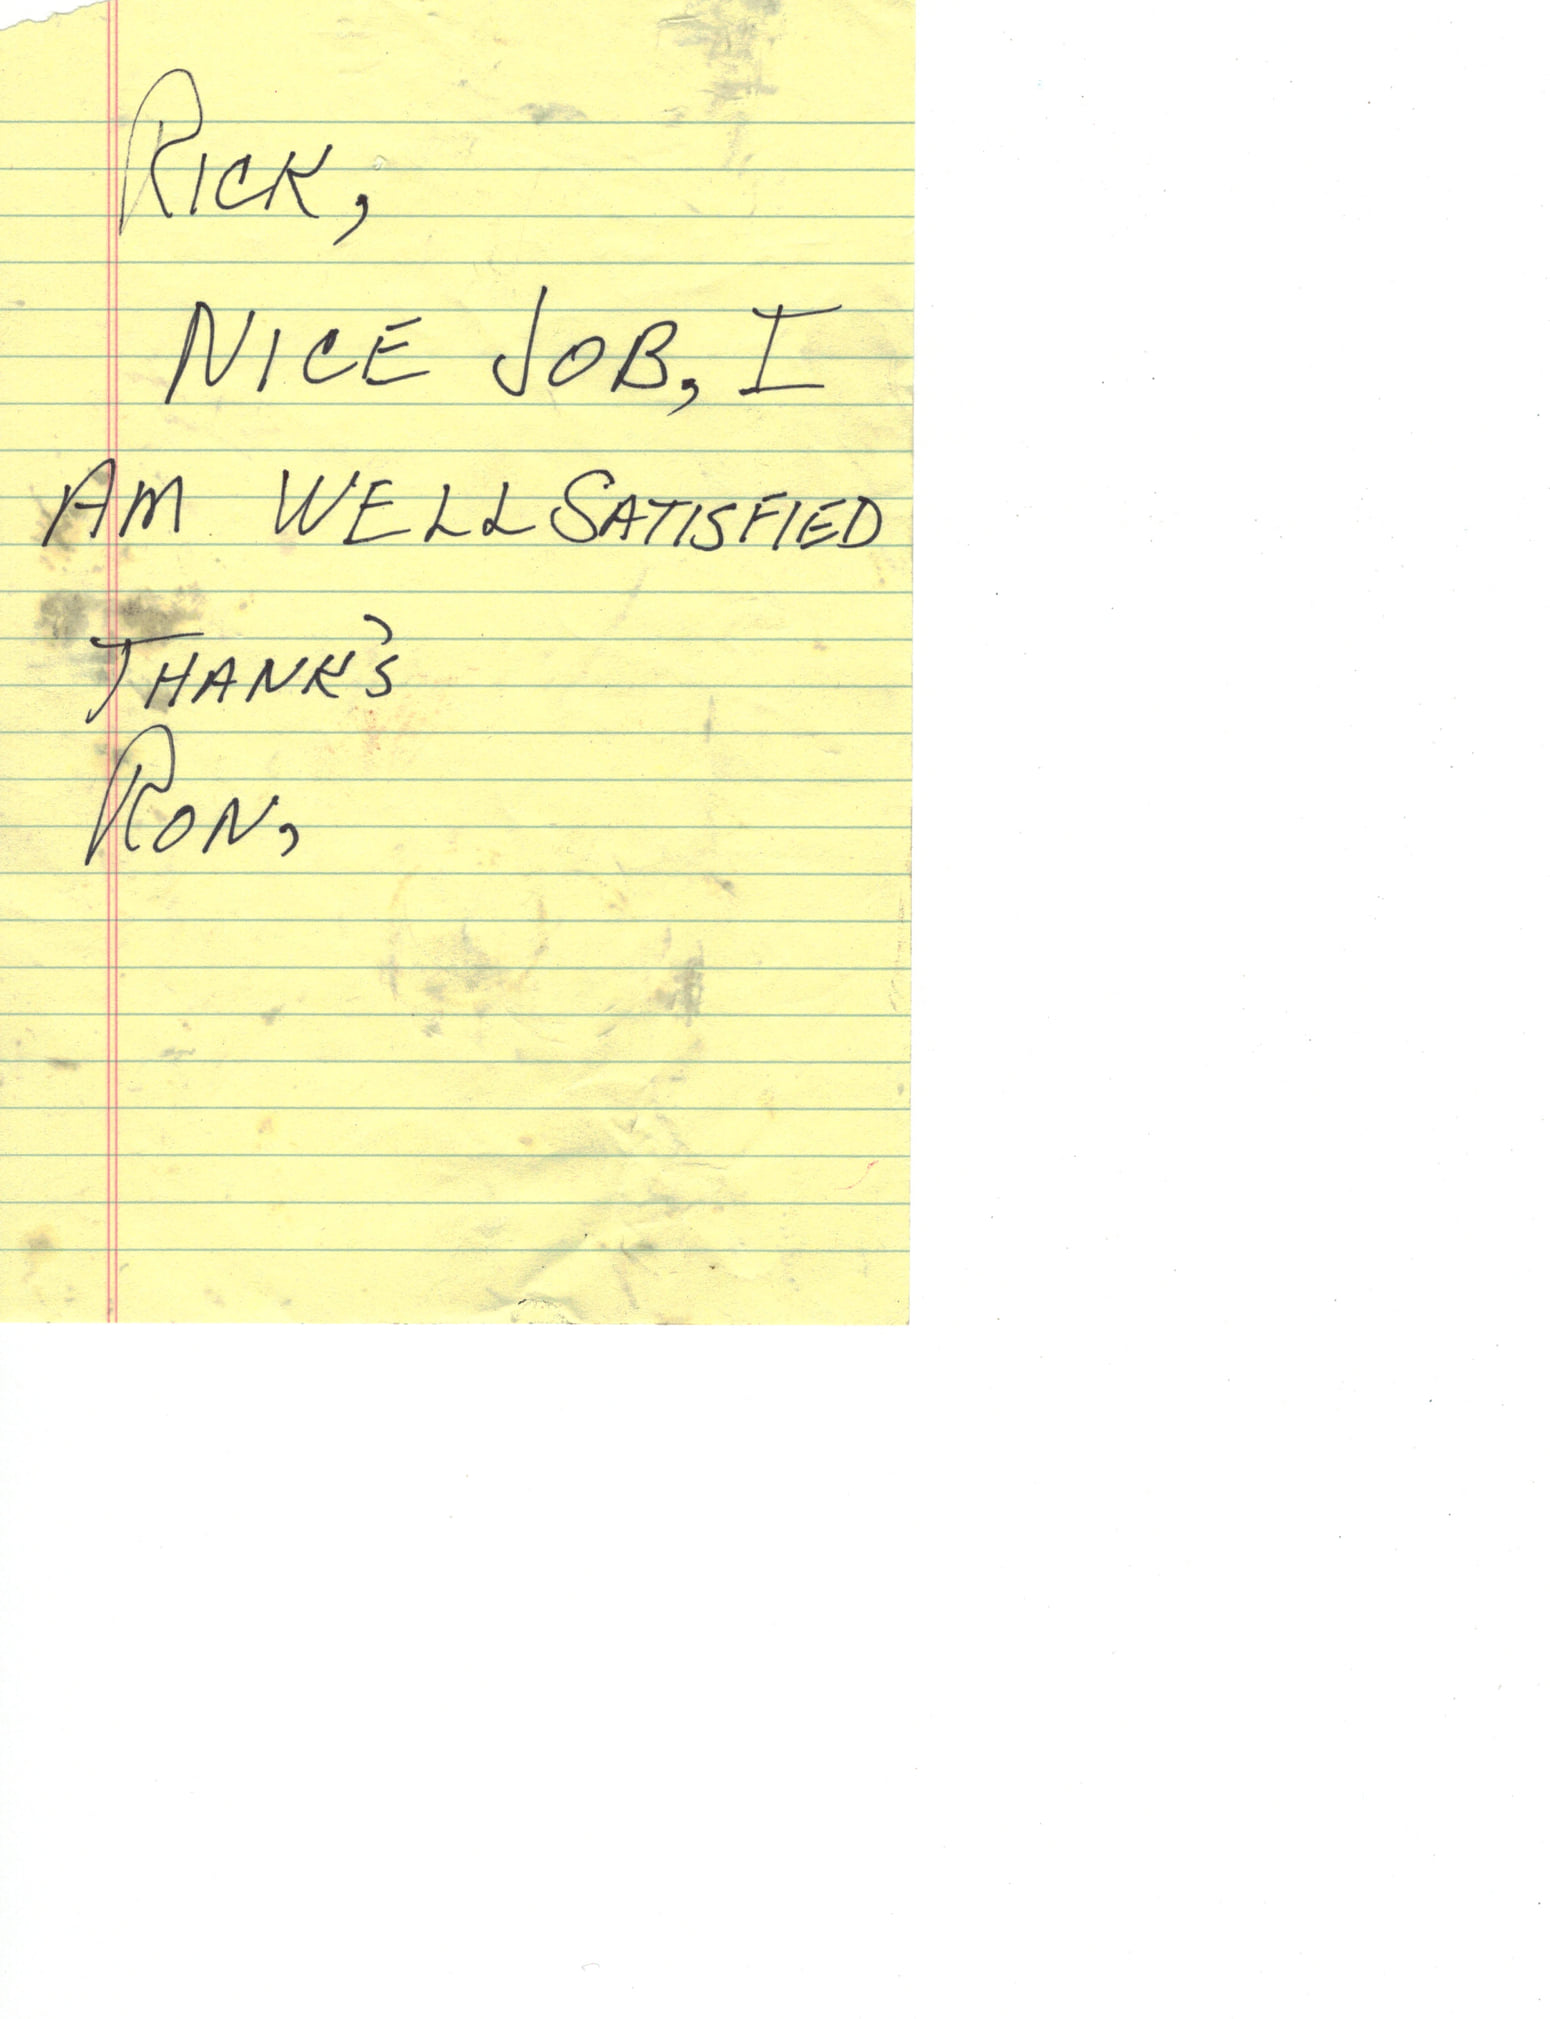 RICK,
NICE JOB, I
AM WELL SATISFIED
THANK'S
RON,